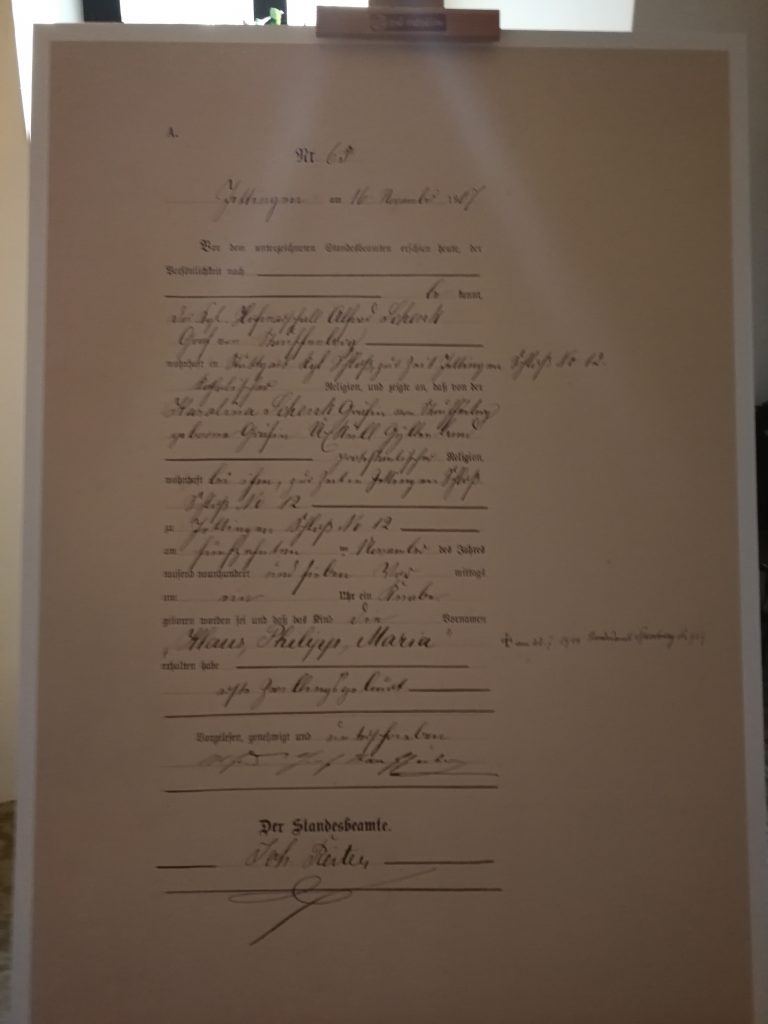 A.
Nr. 65
Jettingen am 16 November 1907
Vor dem unterzeichneten Standesbeamten erschien heute, der
Persönlichkeit nach
be kannt,
der Kgl. Hofmarschall Alfred Schenk
Graf von Stauffenberg
wohnhaft in Stuttgart Kgl Schloß, zur Zeit Jettingen Schloß No 12
katholischer Religion, und zeigte an, daß von der
Karolina Schenk Gräfin von Stauffenberg
geborene Gräfin Üxküll Gyllenband
protestantischer Religion,
wohnhaft bei ihm, zur Zeit Jettingen
Schloß No 12
zu Jettingen Schloß No 12
am fünfzehnten November des Jahres
tausend neunhundert und sieben Vor mittags
um ein Uhr ein Knabe
geboren worden sei und daß das Kind die Vornamen
"Klaus, Philipp, Maria"
erhalten habe
Zwillingsgeburt
Vorgelesen, genehmigt und unterschrieben
Alfred Graf Stauffenberg
Der Standesbeamte.
Joh